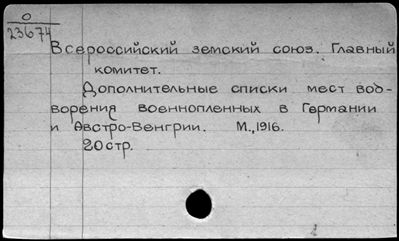 О
23674
Всероссийский земский союз. Главный
комитет.
Дополнительные списки мест вод-
ворения военнопленных в Германии
и Австро-Венгрии. М., 1916.
20 стр.